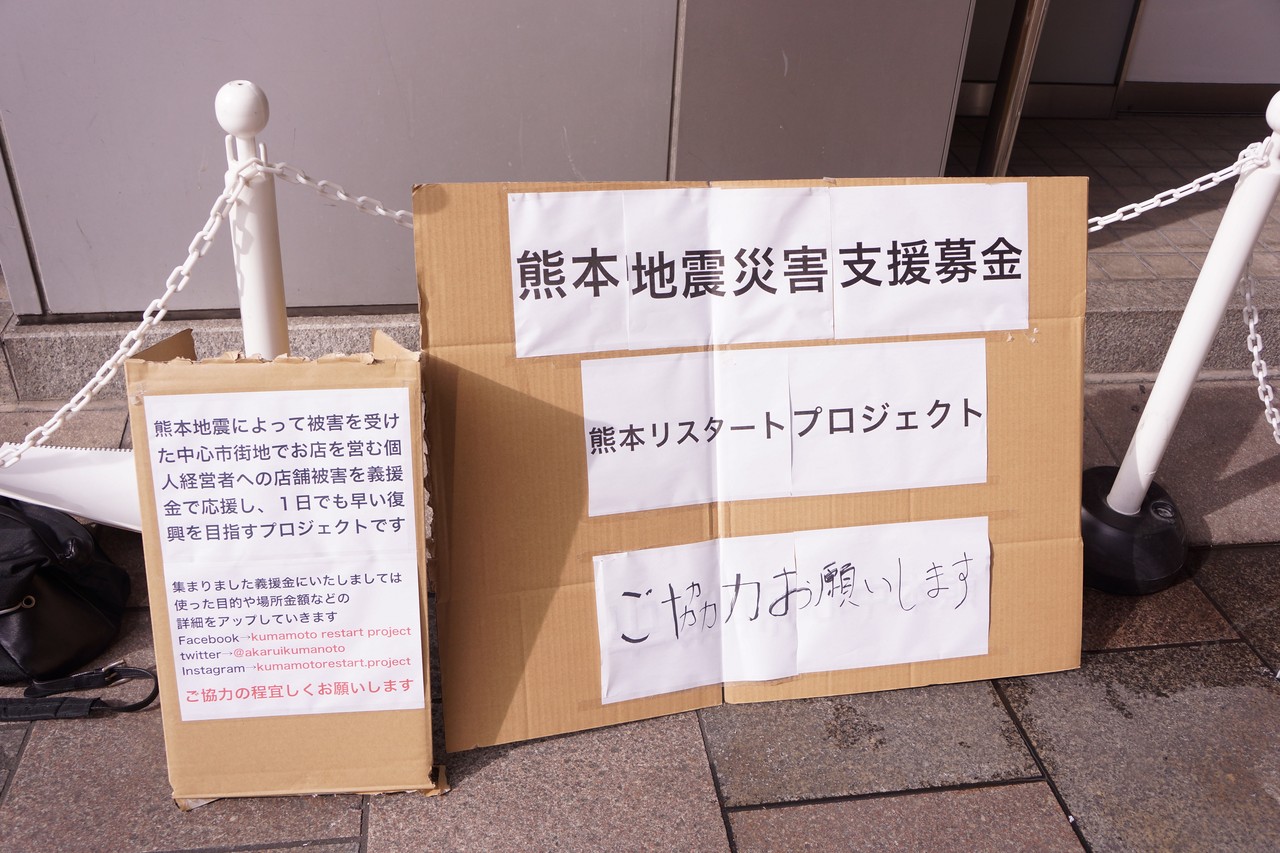 熊本地震災害支援募金
熊本リスタートプロジェクト
ご協力お願いします
熊本地震によって被害を受け
た中心市街地でお店を営む個
人経営者への店舗被害を義援
金で応援し、１日でも早い復
興を目指すプロジェクトです
集まりました義援金にいたしましては
使った目的や場所金額などの
詳細をアップしていきます
Facebook→kumamoto restart project
twitter→@akaruikumanoto
Instagram→kumamotorestart.project
ご協力の程宜しくお願いします